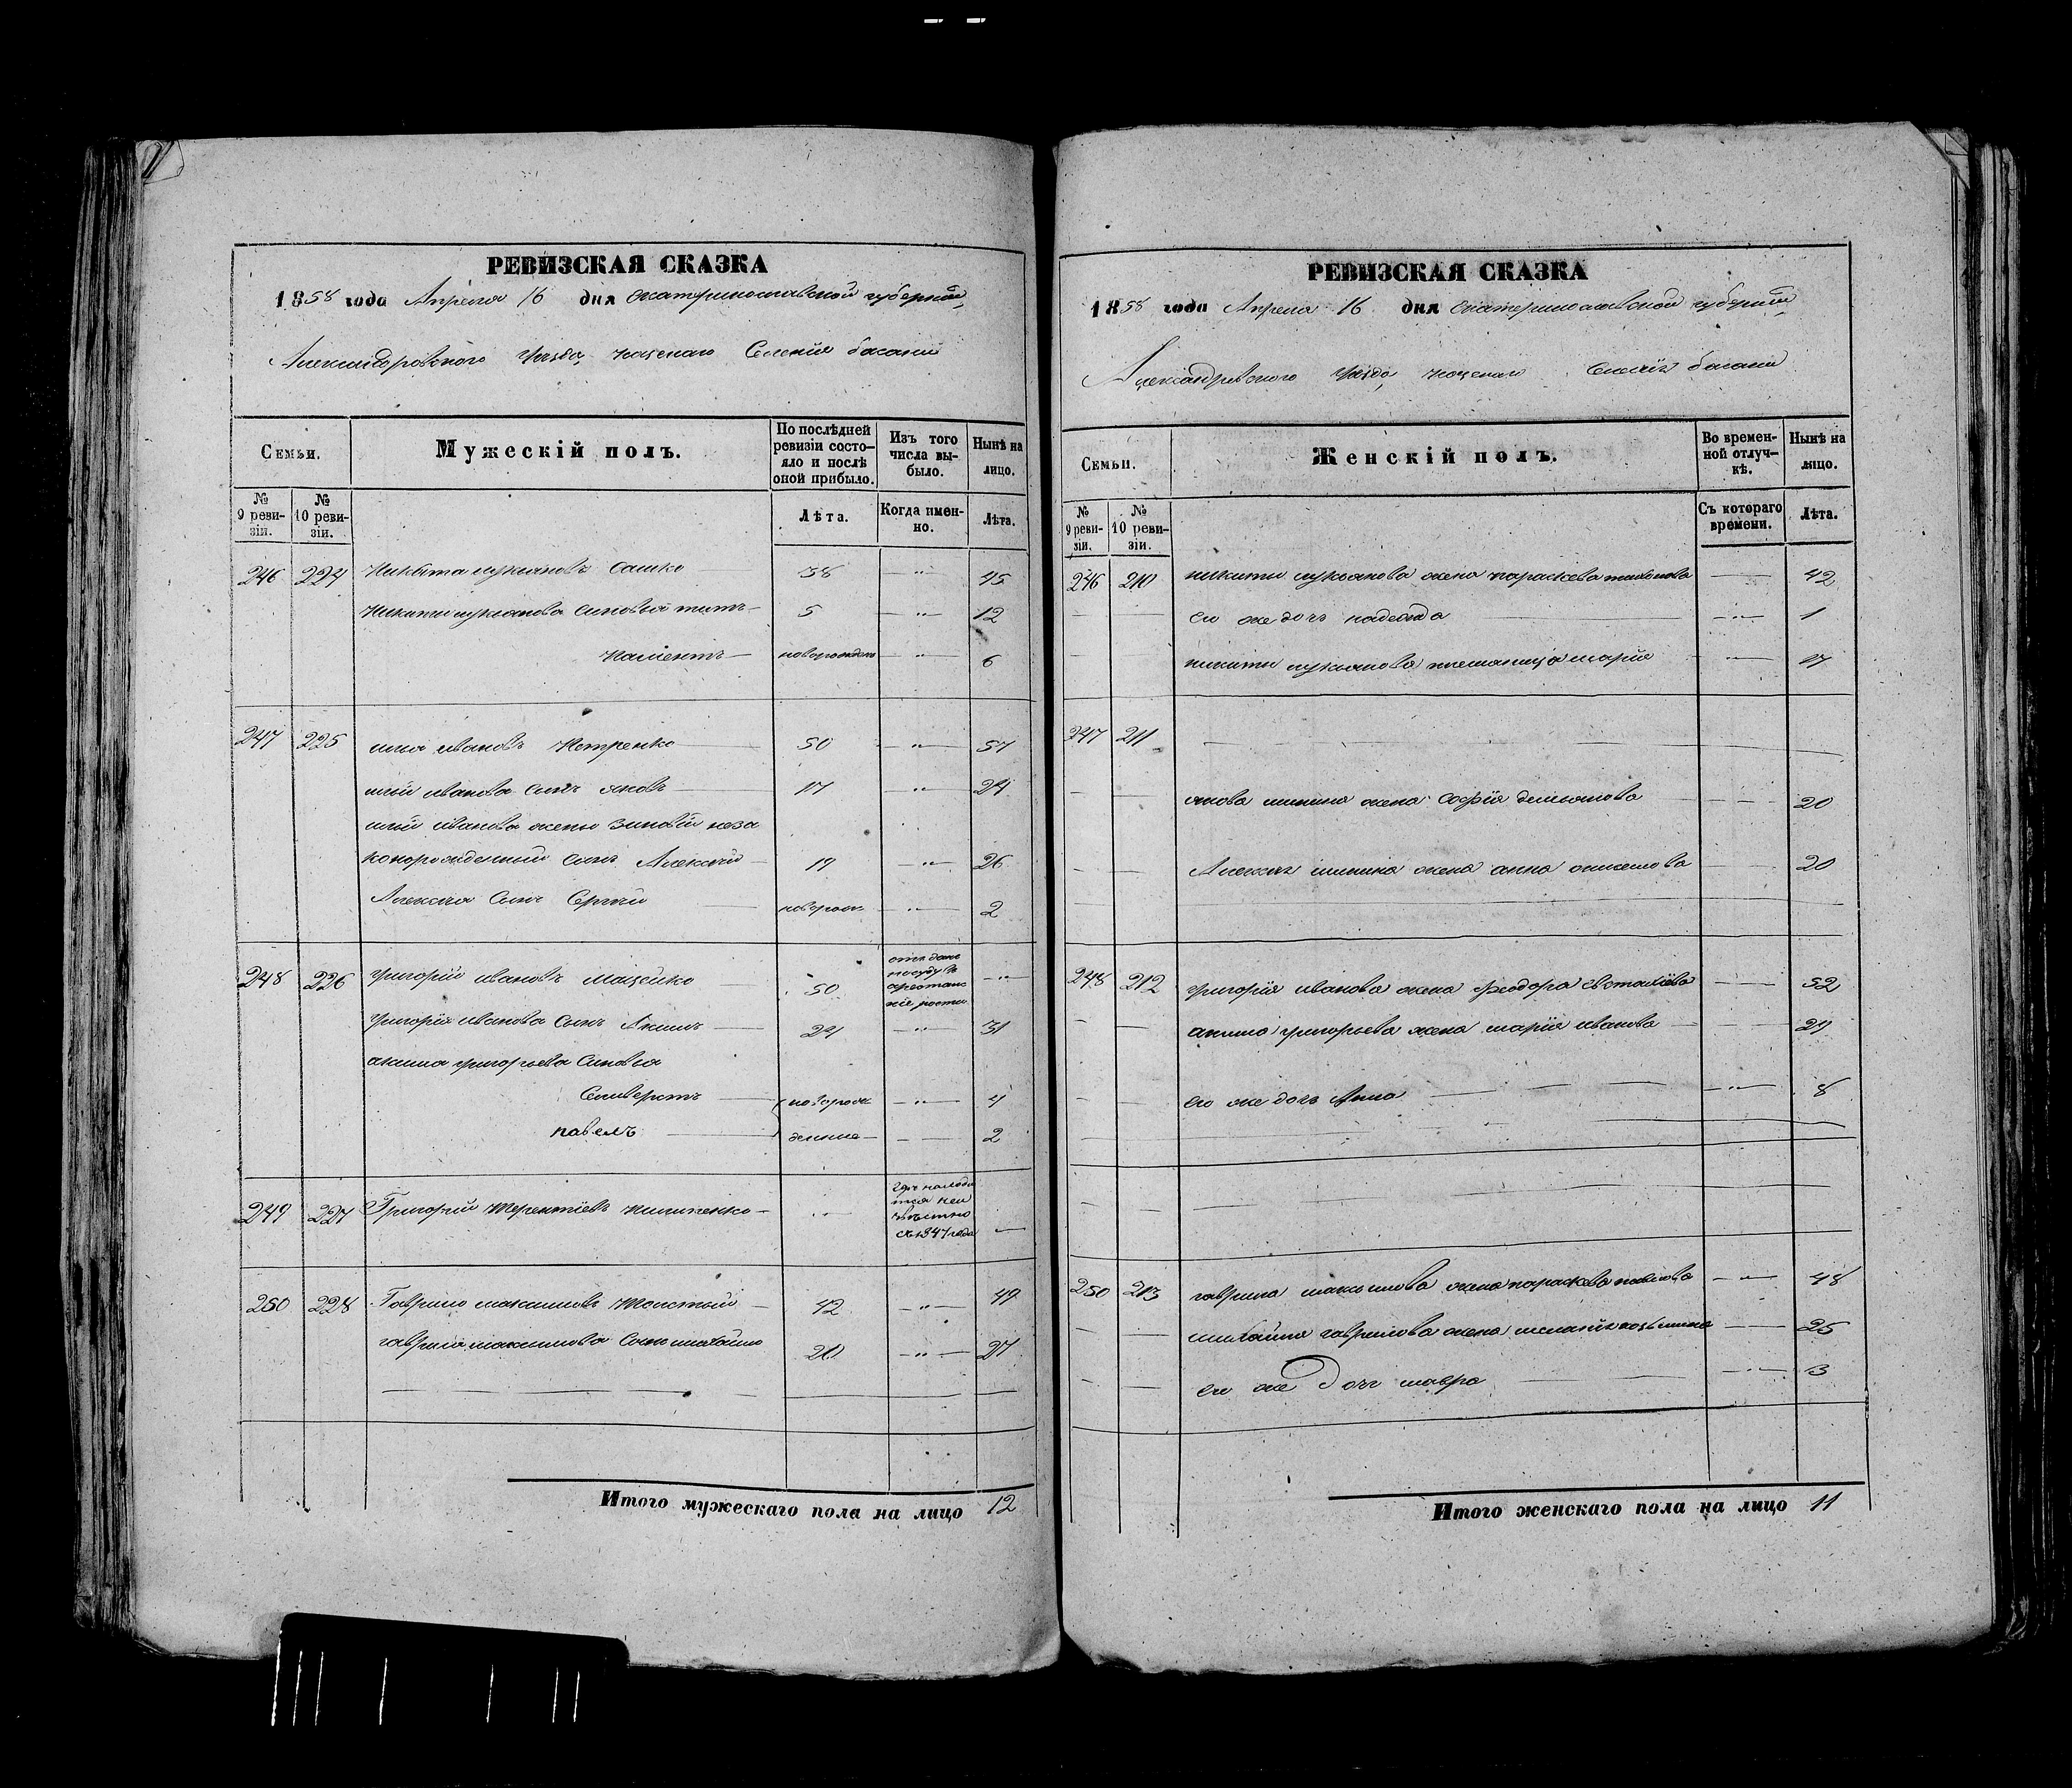 РЕВИЗСКАЯ СКАЗКА
1858 года Апреля 16 дня Екатеринославской губернии,
Александровского Уезда, казенаго Селенія басани
Семьи.
Мужескій полъ.
По послѣдней ревизіи состо-яло и послѣ оной прибыло.
Изъ того числа вы-было.
Нынѣ на лицо.
№ 9 реви-зіи.
№ 10 реви-зіи.
Лѣта.
Когда имен-но.
Лѣта.
246 224 Никита лукьяновъ Сашко 38 45
Никиты лукьянова Сыновья титъ 5 12
новорожден 6
247 225 илья ивановъ Петренко 50 57
ильи иванова Сынъ яковъ 17 24
ильи иванова жены Зиновіи неза
конорожденный Сынъ Алексѣй 19 26
Алексѣя Сынъ Сергѣй новорож 2
248 226 григорій ивановъ Мацейко 50 отдань по суду въ арестанс кіе роты
Григорія иванова Сынъ Акимъ 24 31
акима григорьева Сыновья
Селиверстъ новорож 4
павелъ денные 2
249 227 Григорій Терентіевъ Пилипенко где находи тся неи звѣстно съ 1847 года
250 228 Гаврило максимовъ Толстый 42 49
гаврила максимова Сынъ михайло 20 27
Итого мужескаго пола на лицо 12
РЕВИЗСКАЯ СКАЗКА
1858 года Апреля 16 дня Екатеринославской губерніи,
Александровского Уезда, казенаго Селенія басани
Семьи.
Женскій полъ.
Во времен-ной отлуч-кѣ.
Нынѣ на лицо.
№ 9 реви-зіи.
№ 10 реви-зіи.
Съ котораго времени.
Лѣта.
246 210 никиты лукьянова жена параскева 42
его же дочь надежда 1
никиты лукьянова племяница марія 17
247 211
якова ильина жена Софія демьянова 20
Алексѣя ильина жена анна 20
248 212 григорія иванова жена феодора 52
акима григорьева жена марія иванова 29
его же дочь Анна 8
250 213 гаврила максимова жена параскева павлова 48
михайла гаврилова жена 25
его же дочь мавра 3
Итого женскаго пола на лицо 11